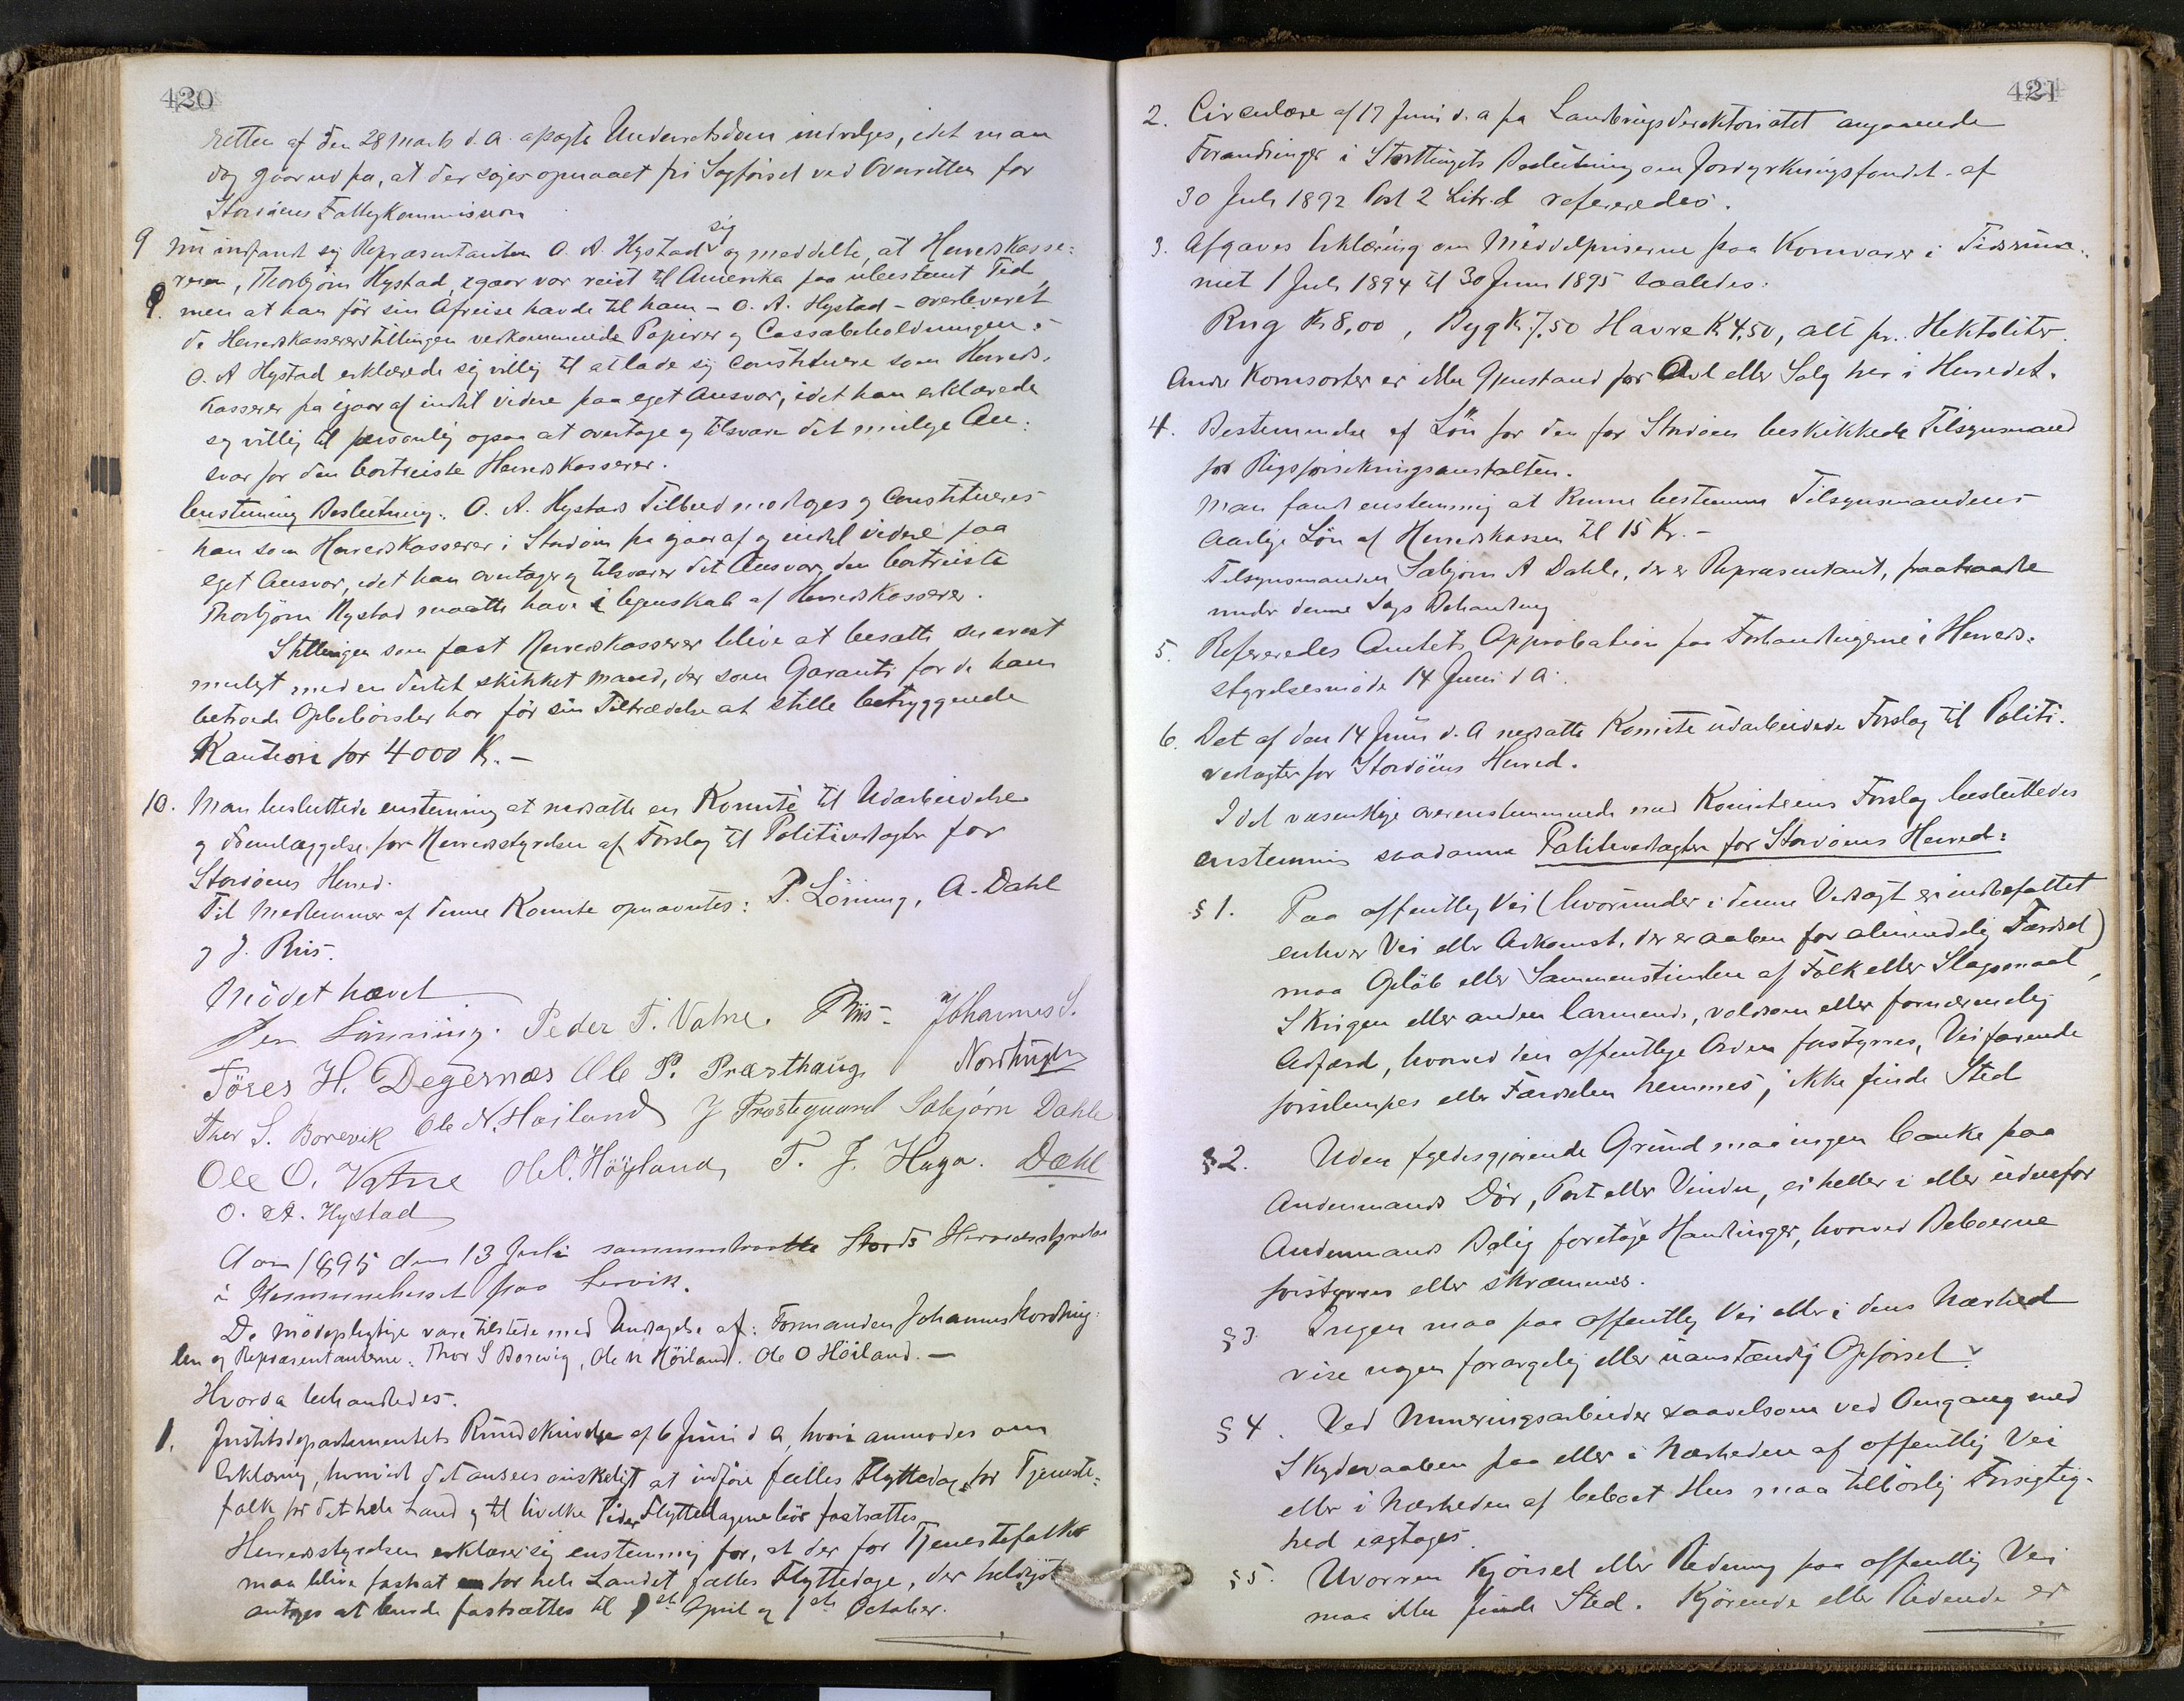 420
retten af den 28 Marts d.a. afsagte Underretsdom indvilges, idet man
dog gaar ud fra, at der søges opnaaet fri Sagførsel ved Overretten for
Stordøens Fattigkommission
9 Nu indfandt sig Repræsentanten O. A. Hystad sig og meddelte, at Herredskasse-
reren, Thorbjørn Hystad, igaar var reist til Amerika paa ubestemt Tid,
9. men at han før sin Afreise havde til ham - O. A. Hystad - overleveret
de Herredskassererstillingen vedkommende Papirer og Cassabeholdningen.
O. A Hystad erklærede sig villig til at lade sig constituere som Herreds-
kasserer fra igaar af indtil videre paa eget Ansvar, idet han erklærede
sig villig til personlig ogsaa at overtage og tilsvare det mulige An-
svar for den bortreiste Herredskasserer.
Enstemmig Beslutning: O. A. Hystads Tilbud modtages og Constitueres
han som Herredskasserer i Stordøen fra igaar af og indtil videre paa
eget Ansvar, idet han overtager og tilsvarer det Ansvar, den bortreiste
Thorbjørn Hystad maatte have i Egenskab af Herredskasserer.
Stillingen som fast Herredskasserer blive at besætte snarest
muligt med en dertil skikket Mand, der som Garanti for de ham
betroede Opbebørsler har før sin Tiltrædelse at stille betryggende
Kaution for 4000 Kr. -
10. Man besluttede enstemmig at nedsætte en Komite til Udarbeidelse
og Fremlæggelse for Herredsstyrelsen af Forslag til Politivedtægter for
Stordøens Herred.
Til Medlemmer af denne Komite opnævntes: P. Lönning, A. Dahl
og J. Riis.
Mödet hævet
Per Lönning. Peder T. Vatne. Riis. Johannes S.
Töres H. Degernæs Ole P. Præsthaug. Nordhuglen
Thor S. Borevik Ole N. Høiland J Præstegaard Sæbjørn Dahle
Ole O. Vatne Ole O. Höyland, T. J. Haga. Dahl
O. A. Hystad
Aar 1895 den 13 Juli sammentraadte Stords Herredsstyrelse
i Kommunehuset paa Lervik.
De Mödepligtige vare tilstede med Undtagelse af: Formanden Johannes Nordhug-
len og Repræsentanterne: Thor S Borevig, Ole N Höiland. Ole O Höiland. -
Hvorda behandledes.
1. Justitsdepartementets Rundskrivelse af 6 Juni d a, hvori anmodes om
Erklæring, hvorvidt det ansees ønskeligt at indføre fælles Flyttedage for Tjeneste-
folk for det hele Land og til hvilke Tider Flyttedagene bör fastsættes
Herredsstyrelsen erklærer sig enstemmig for, at der for Tjenestefolk
maa blive fastsat for hele Landet fælles Flyttedage, der heldigst
antages at burde fastsættes til 1ste April og 1ste October.
421
2. Circulære af 17 Juni d. a fra Landbrugsdirektoriatet angaaende
Forandringer i Storthingets Beslutning om Jorddyrkningsfondet af
30 Juli 1892 Post 2 Litr. d refereredes.
3. Afgaves Erklæring om Middelpriserne paa Kornvarer i Tidsrum-
met 1 Juli 1894 til 30 Juni 1895 saaledes:
Rug Kr 8,00, Byg Kr 7,50 Havre Kr 4,50, alt pr. Hektoliter.
Andre Kornsorter er ikke Gjenstand for Avl eller Salg her i Herredet.
4. Bestemmelse af Løn for den for Stordøen beskikkede Tilsynsmand
for Rigsforsikringsanstalten.
Man fandt enstemmig at kunne bestemme Tilsynsmandens
aarlige Løn af Herredskassen til 15 Kr. -
Tilsynsmanden Sæbjørn A Dahle, der er Repræsentant, fratraadte
under denne Sags Behandling
5. Refereredes Amtets Approbation paa Forhandlingerne i Herreds-
styrelsesmöde 14 Juni d A.
6. Det af den 14 Juni d. A nedsatte Komite udarbeidede Forslag til Politi-
vedtægter for Stordöens Herred.
I det væsentlige overensstemmende med Komiteens Forslag besluttedes
enstemmig saadanne Politivedtægter for Stordöens Herred:
§ 1. Paa offentlig Vei (hvorunder i denne Vedtægt er indbefattet
enhver Vei eller Adkomst, der er aaben for almindelig Færdsel)
maa Opløb eller Sammenstimlen af Folk eller Slagsmaal,
Skrigen eller anden larmende, voldsom eller fornærmelig
Adfærd, hvorved den offentlige Orden forstyrres, Veifarende
forulempes eller Færdselen hemmes, ikke finde Sted
§ 2. Uden fyldestgjørende Grund maa ingen banke paa
Andenmands Dör, Port eller Vindu, ei heller i eller udenfor
Andenmands Bolig foretage Handlinger, hvorved Beboerne
forstyrres eller skræmmes.
§ 3. Ingen maa paa offentlig Vei eller i dens Nærhed
vise nogen forargelig eller uanstændig Opførsel.
§ 4. Ved Mineringsarbeider saavelsom ved Omgang med
Skydevaaben paa eller i Nærheden af offentlig Vei
eller i Nærheden af beboet Hus maa tilbørlig Forsigtig-
hed iagtages.
§ 5. Uvorren Kjørsel eller Ridning paa offentlig Vei
maa ikke finde Sted. Kjørende eller Ridende er